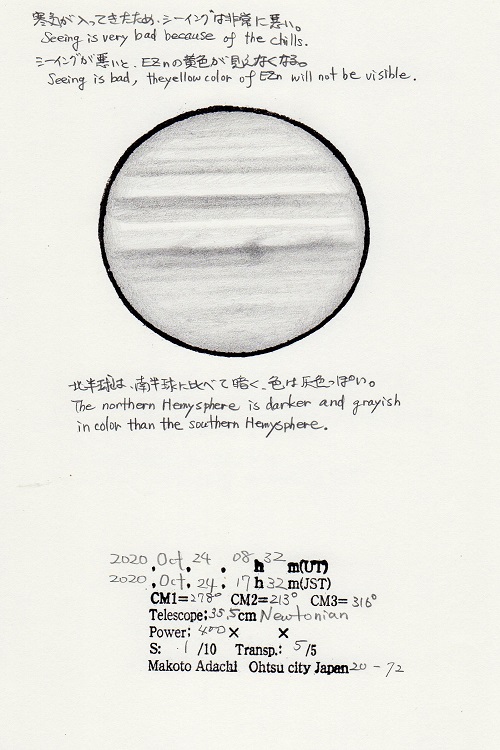 寒気が入ってきたため、シーイングは非常に悪い。
Seeing is very bad because of the chills.
シーイングが悪いと、EZnの黄色が見えなくなる。
Seeing is bad, theyellow color of EZn will not be visible.
北半球は、南半球に比べて暗く、色は灰色っぽい。
The northern Hemysphere is darker and grayish
in color than the southern Hemysphere.
2020.Oct.24.08h32m(UT)
2020.Oct.24.17h32m(JST)
CM1=278° CM2=213° CM3=316°
Telescope:35.5cm Newtonian
Power: 400× ×
S: 1/10 Transp.: 5/5
Makoto Adachi Ohtsu city Japan 20-72